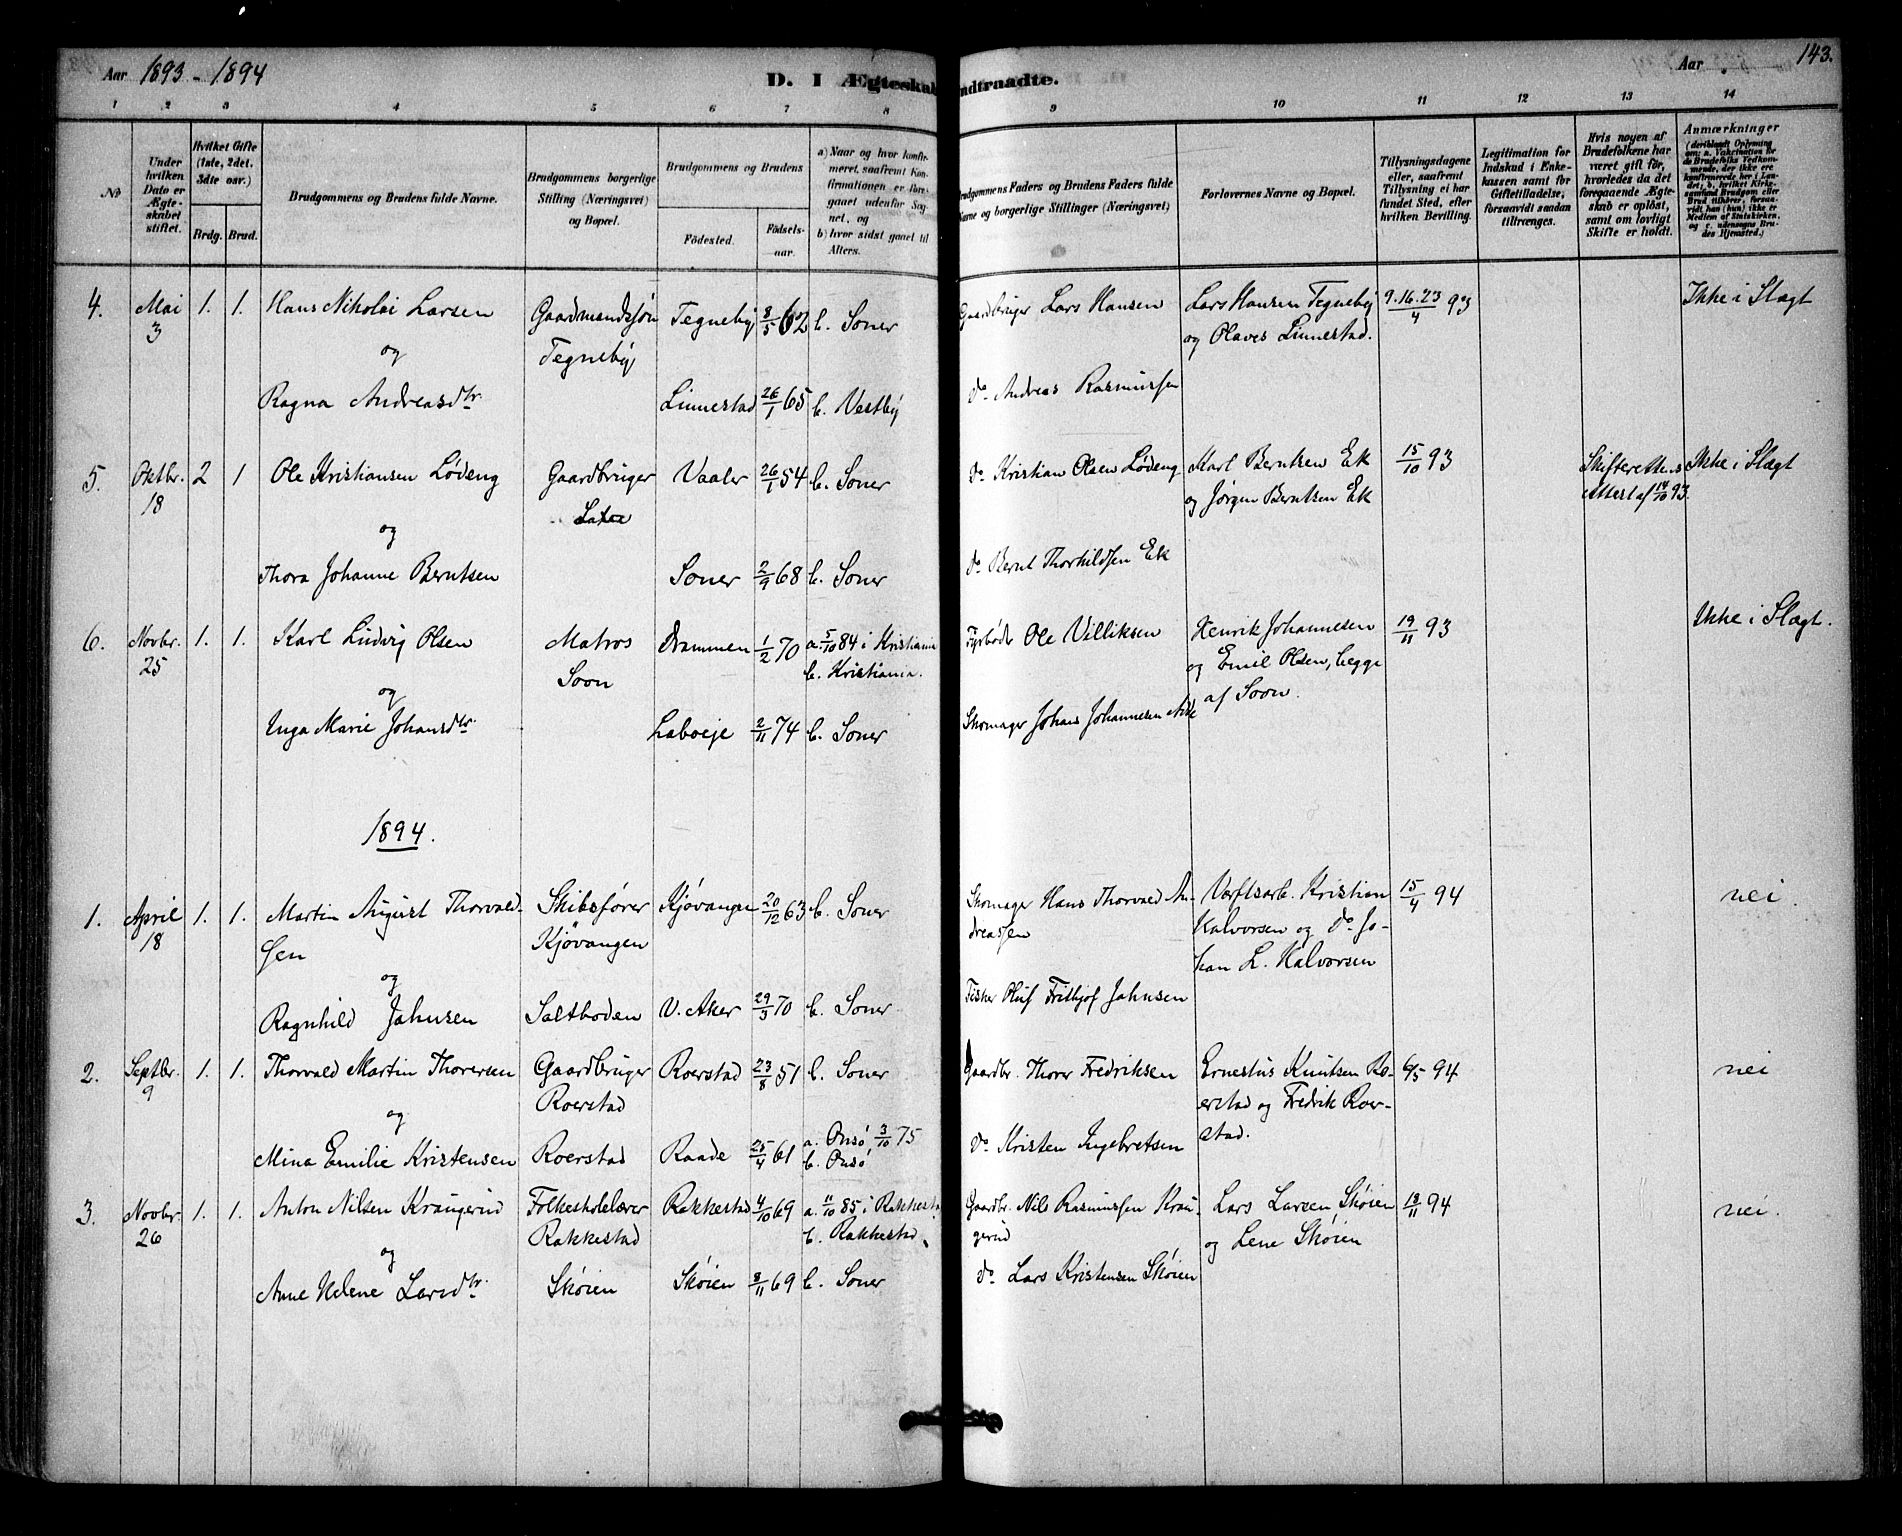 Aar 1893 - 1894
D. I Ægteskab
indtraadte.
Aar
143.
1 2 3 4 5 6 7 8 9 10 11 12 13 14
No
Under hvilken Dato er Ægteskabet stiftet.
Hvilket Gifte (1ste, 2det, 3die osv.)
Brdg. Brud.
Brudgommens og Brudens fulde Navne.
Brudgommens borgerlige Stilling (Næringsvei) og Bopæl.
Brudgommens og Brudens
Fødested. Fødselsaar.
a) Naar og hvor konfirmeret, saafremt Konfirmationen er foregaaet udenfor Sognet, og
b) hvor sidst gaaet til Alters.
Brudgommens Faders og Brudens Faders fulde Navne og borgerlige Stillinger (Næringsvei)
Forlovernes Navne og Bopæl.
Tillysningsdagene eller, saafremt Tillysning ei har fundet Sted, efter hvilken Bevilling.
Legitimation for Indskud i Enkekassen samt for Giftetilladelse, forsaavidt saadan tiltrænges.
Hvis nogen af Brudefolkene har været gift før, hvorledes da det foregaaende Ægteskab er opløst, samt om lovligt Skifte er holdt.
Anmærkninger
(deriblandt Oplysning om: a. Vakcination for de Brudefolks Vedkommende, der ikke ere konfirmerede her i Landet; b. hvilket Kirkesamfund Brudgom eller Brud tilhører, forsaavidt han (hun) ikke er Medlem af Statskirken, og c. udensogns Brudes Hjemsted.)
4. Mai 3 1. 1. Hans Nikolai Larsen Gaardmandssøn Tegneby Tegneby 8/5 62 b. Soner Gaardbruger Lars Hansen Lars Hansen Tegneby og Olaves Linnestad. 9.16.23/4 93 Ikke i Slægt
og
Ragna Andreasdtr. Linnestad 26/1 65 b. Vestby do Andreas Rasmussen
5. Oktbr. 18 2 1 Ole Kristiansen Lødeng Gaardbruger Vaaler 26/1 54 b. Soner do Kristian Olsen Lødeng Karl Berntsen Ek og Jørgen Berntsen Ek 15/10 93 Skifterettens Attest af 14/10 93. Ikke i Slægt
og
Thora Johanne Berntsen Soner 2/9 68 b. Soner do Bernt Thorkildsen Ek
6. Novbr. 25 1. 1. Karl Ludvig Olsen Matros Soon Drammen 1/2 70 a. 5/10 84 i Kristiania b. Kristiania. Fyrbøder Ole Villiksen Henrik Johannesen og Emil Olsen, begge af Soon. 19/11 93 Ikke i Slægt.
og
Inga Marie Johansdtr. Labøeje 2/11 74 b. Soner Skomager Johans Johannesen
1894.
1. April 18 1. 1. Martin August Thorvaldsen Skibsfører Kjøvangen Kjøvangen 20/12 63 b. Soner Skomager Hans Thorvald Andreassen Værftsarb. Kristian Halvorsen og do Johan L. Halvorsen 15/4 94 nei.
og
Ragnhild Jahnsen Saltboden V. Aker 29/3 70 b. Soner Fisker Oluf Frithjof Jahnsen
2. Septbr. 9 1. 1. Thorvald Martin Thoresen Gaardbruger Roerstad Roerstad 23/8 51 b. Soner Gaardbr. Thorer Fredriksen Ernestus Knutsen Roerstad og Fredrik Roerstad. 6/5 94 nei
og
Mina Emilie Kristensen Roerstad Raade 25/4 61 a. Onsø 3/10 75 b. Onsø do Kristen Ingebretsen
3. Novbr. 26 1. 1. Anton Nilsen Kraugerud Folkeskolelærer Rakkestad Rakkestad 4/10 69 a. 11/10 85 i Rakkesta b. Rakkestad Gaardbr. Nils Rasmussen Kraugerud Lars Larsen Skøien og Lene Skøien 18/11 94 nei.
og
Anne Helene Larsdtr. Skøien Skøien 8/11 69 b. Soner do Lars Kristensen Skøien